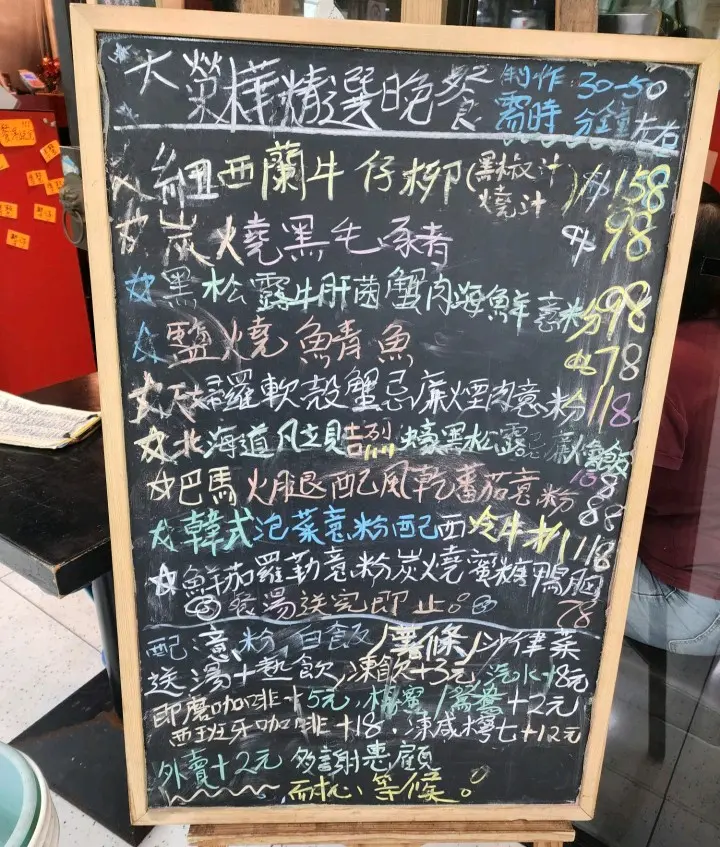 大榮樺精選晚餐 制作需時 30-50分鐘左右
紐西蘭牛仔柳(黑椒汁/燒汁) $158
炭燒黑毛豬 $98
黑松露牛肝菌蟹肉海鮮意粉98
鹽燒鯖魚 $78
羅軟殼蟹忌廉煙肉意粉118
北海道凡立貝吉列蠔黑松露忌廉燴飯 108
巴馬火腿配風乾蕃茄意粉 88
韓式泡菜意粉配西冷牛扒118
鮮茄羅勒意粉炭燒蜜糖鴨胸 78
餐湯送完即止。
配意粉,白飯/薯條/沙律菜
送湯+熱飲,凍飲+3元,汽水+8元
即磨咖啡+5元,檸蜜/鴛鴦+2元
西班牙咖啡+18,凍咸檸七+12元
外賣+2元 多謝惠顧
耐心等候。